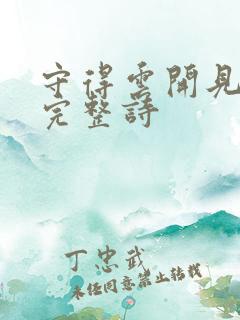 守得雲開見
完整詩
丁忠武
未经同意禁止转载